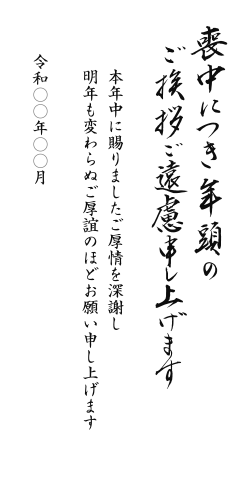 喪中につき年頭の
ご挨拶ご遠慮申し上げます
本年中に賜りましたご厚情を深謝し
明年も変わらぬご厚誼のほどお願い申し上げます
令和〇〇年〇〇月